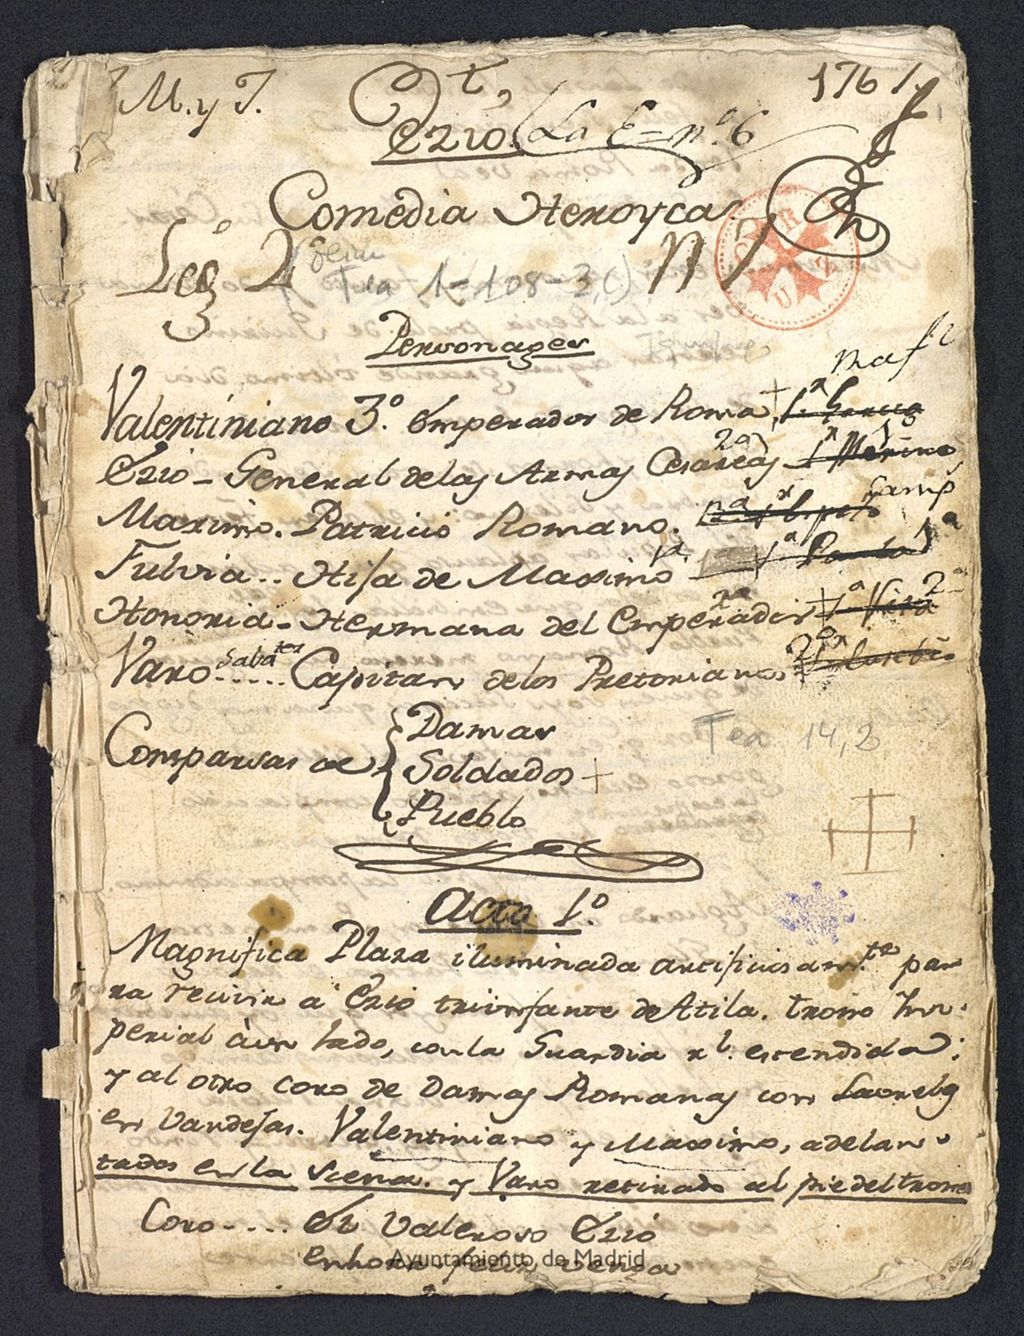 M. y J.
1761
Ezio La E= nº 6
Comedia Heroyca
Leg 2
Tea 1-108-3, C)
N 7
Personages
Mafz
Valentiniano 3.º Emperador de Roma + 1.ª Garcia
Ezio - General de las Armas Cesareas 2º 1º Merino
Maximo. Patricio Romano. Camp
Fulvia.. Hija de Maximo 1ª
Honoria - Hermana del Emperador + 1ª 2ª
Varo ..... Capitan de los Pretorianos
Comparsas de { Damas
Soldados +
Pueblo
Tea 14,2
Acto 1.º
Magnifica Plaza iluminada artificiosam.te pa-
ra recivir a Ezio triunfante de Atila. trono Im-
perial à un lado, con la Guardia rl. estendida;
y al otro coro de Damas Romanas con Laureles
en Vandejas. Valentiniano y Maximo, adelan-
tados en la scena. y Varo retirado al pie del trono
Coro .... El Valeroso Ezio
en hora feliz venga
Ayuntamiento de Madrid